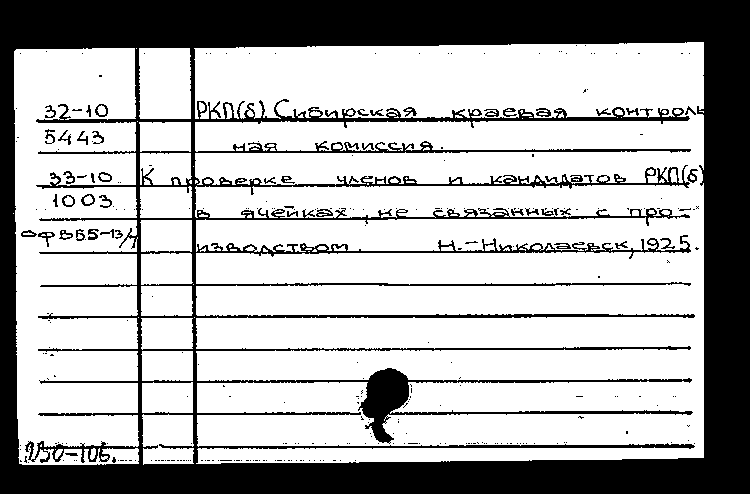 32-10 РКП(б). Сибирская краевая контроль
5443 ная комиссия.
33-10 К проверке членов и кандидатов РКП(б)
1003 в ячейках, не связанных с про-
изводством. Н.-Николаевск, 1925.
250-106.